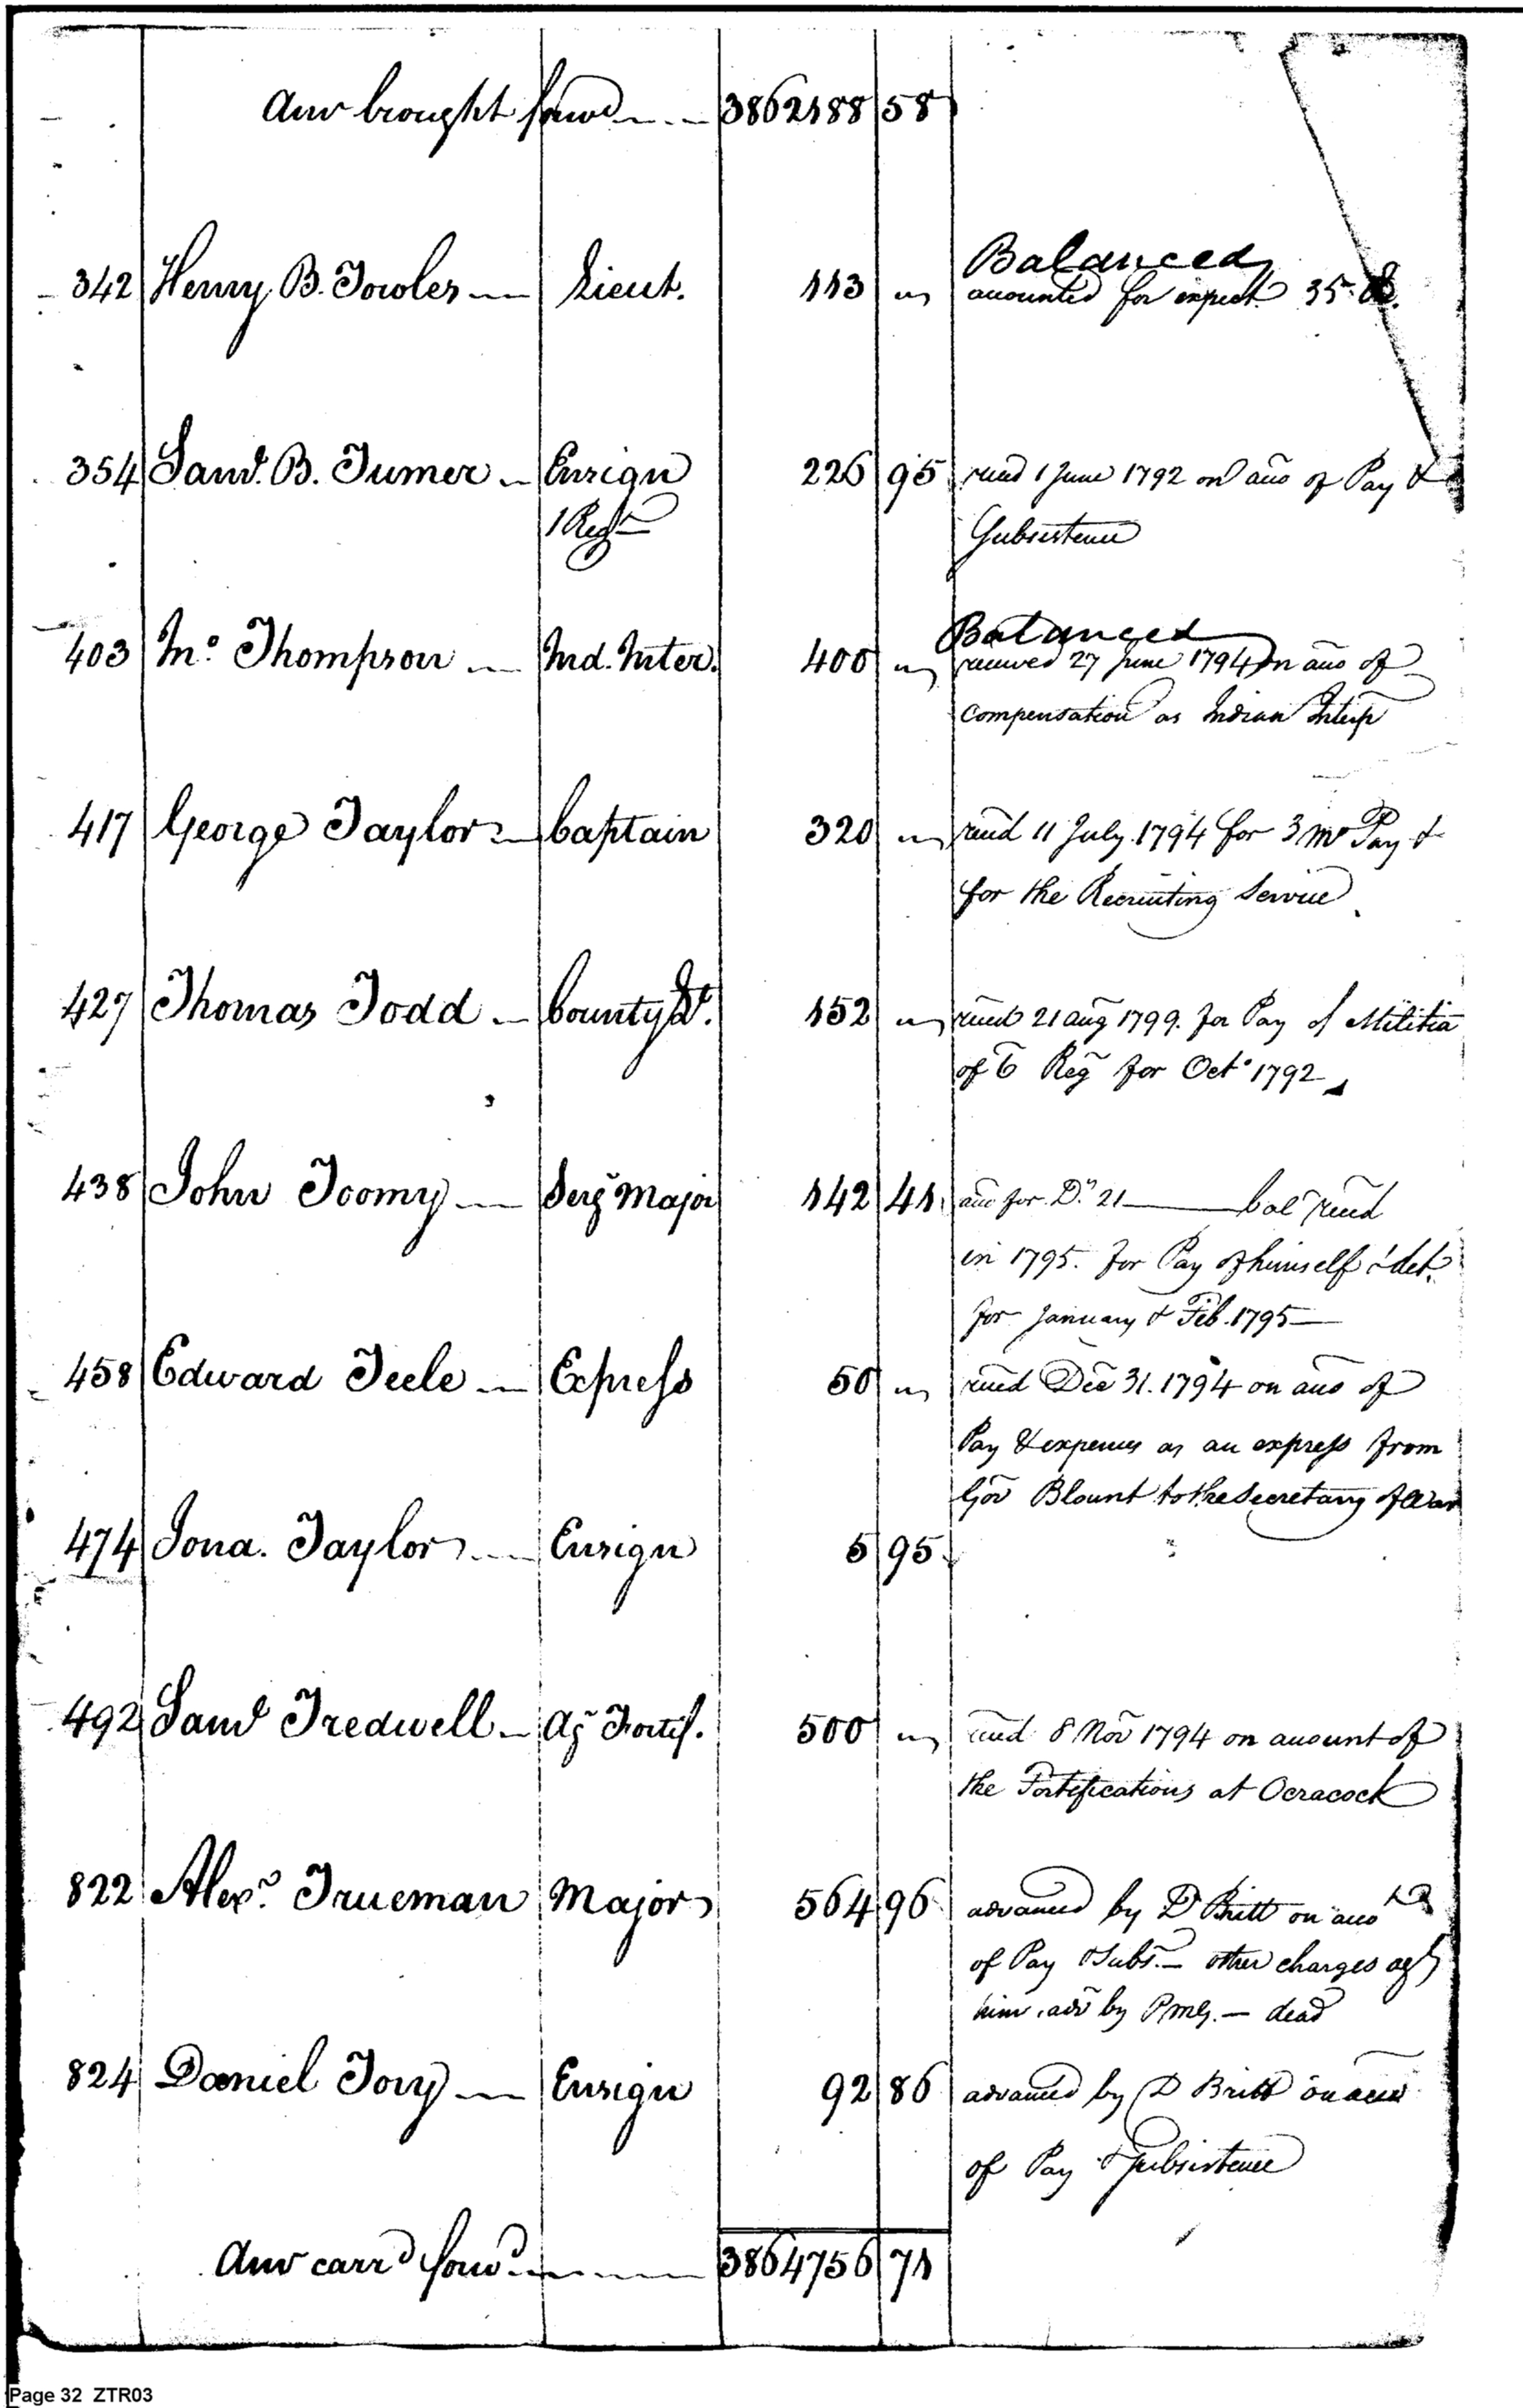 Amt brought forwd 3862188 58
342 Henry B. Towles Lieut. 113 Balanced
accounted for except 35
354 Saml. B. Turner Ensign 226 95 recd 1 June 1792 on acco of Pay &
1 Regt Subsistence
403 Mc Thompson Ind. Inter. 400 Balanced
received 27 June 1794 on acco of
compensation as Indian Interp
417 George Taylor Captain 320 recd 11 July 1794 for 3 Mo Pay &
for the Recruiting Service
427 Thomas Todd County Lt. 152 recd 21 aug 1799. for Pay of Militia
of 6 Reg for Oct 1792
438 John Toomy Serj Major 142 41 acco for Ds 21 bal recd
in 1795. for Pay of himself & det.
for January & Feb. 1795
458 Edward Teele Express 50 recd Dec 31. 1794 on acco of
Pay & expences as an express from
Gov Blount to the Secretary of War
474 Jona. Taylor Ensign 5 95
492 Saml Tredwell Ag Fortif. 500 recd 8 Nov 1794 on account of
the Fortifications at Ocracock
822 Alexr. Trueman Major 564 96 advanced by D Britt on acco
of Pay & Subs. other charges agt
him adv by P M G. — dead
824 Daniel Tory Ensign 92 86 advanced by D Britt on acco
of Pay & Subsistence
Amt carrd forwd. 3864756 71
Page 32 ZTR03